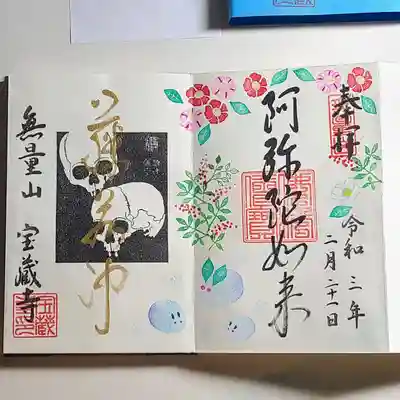 奉拝
令和三年
二月二十一日
阿弥陀如来
若冲
無量山 宝蔵寺